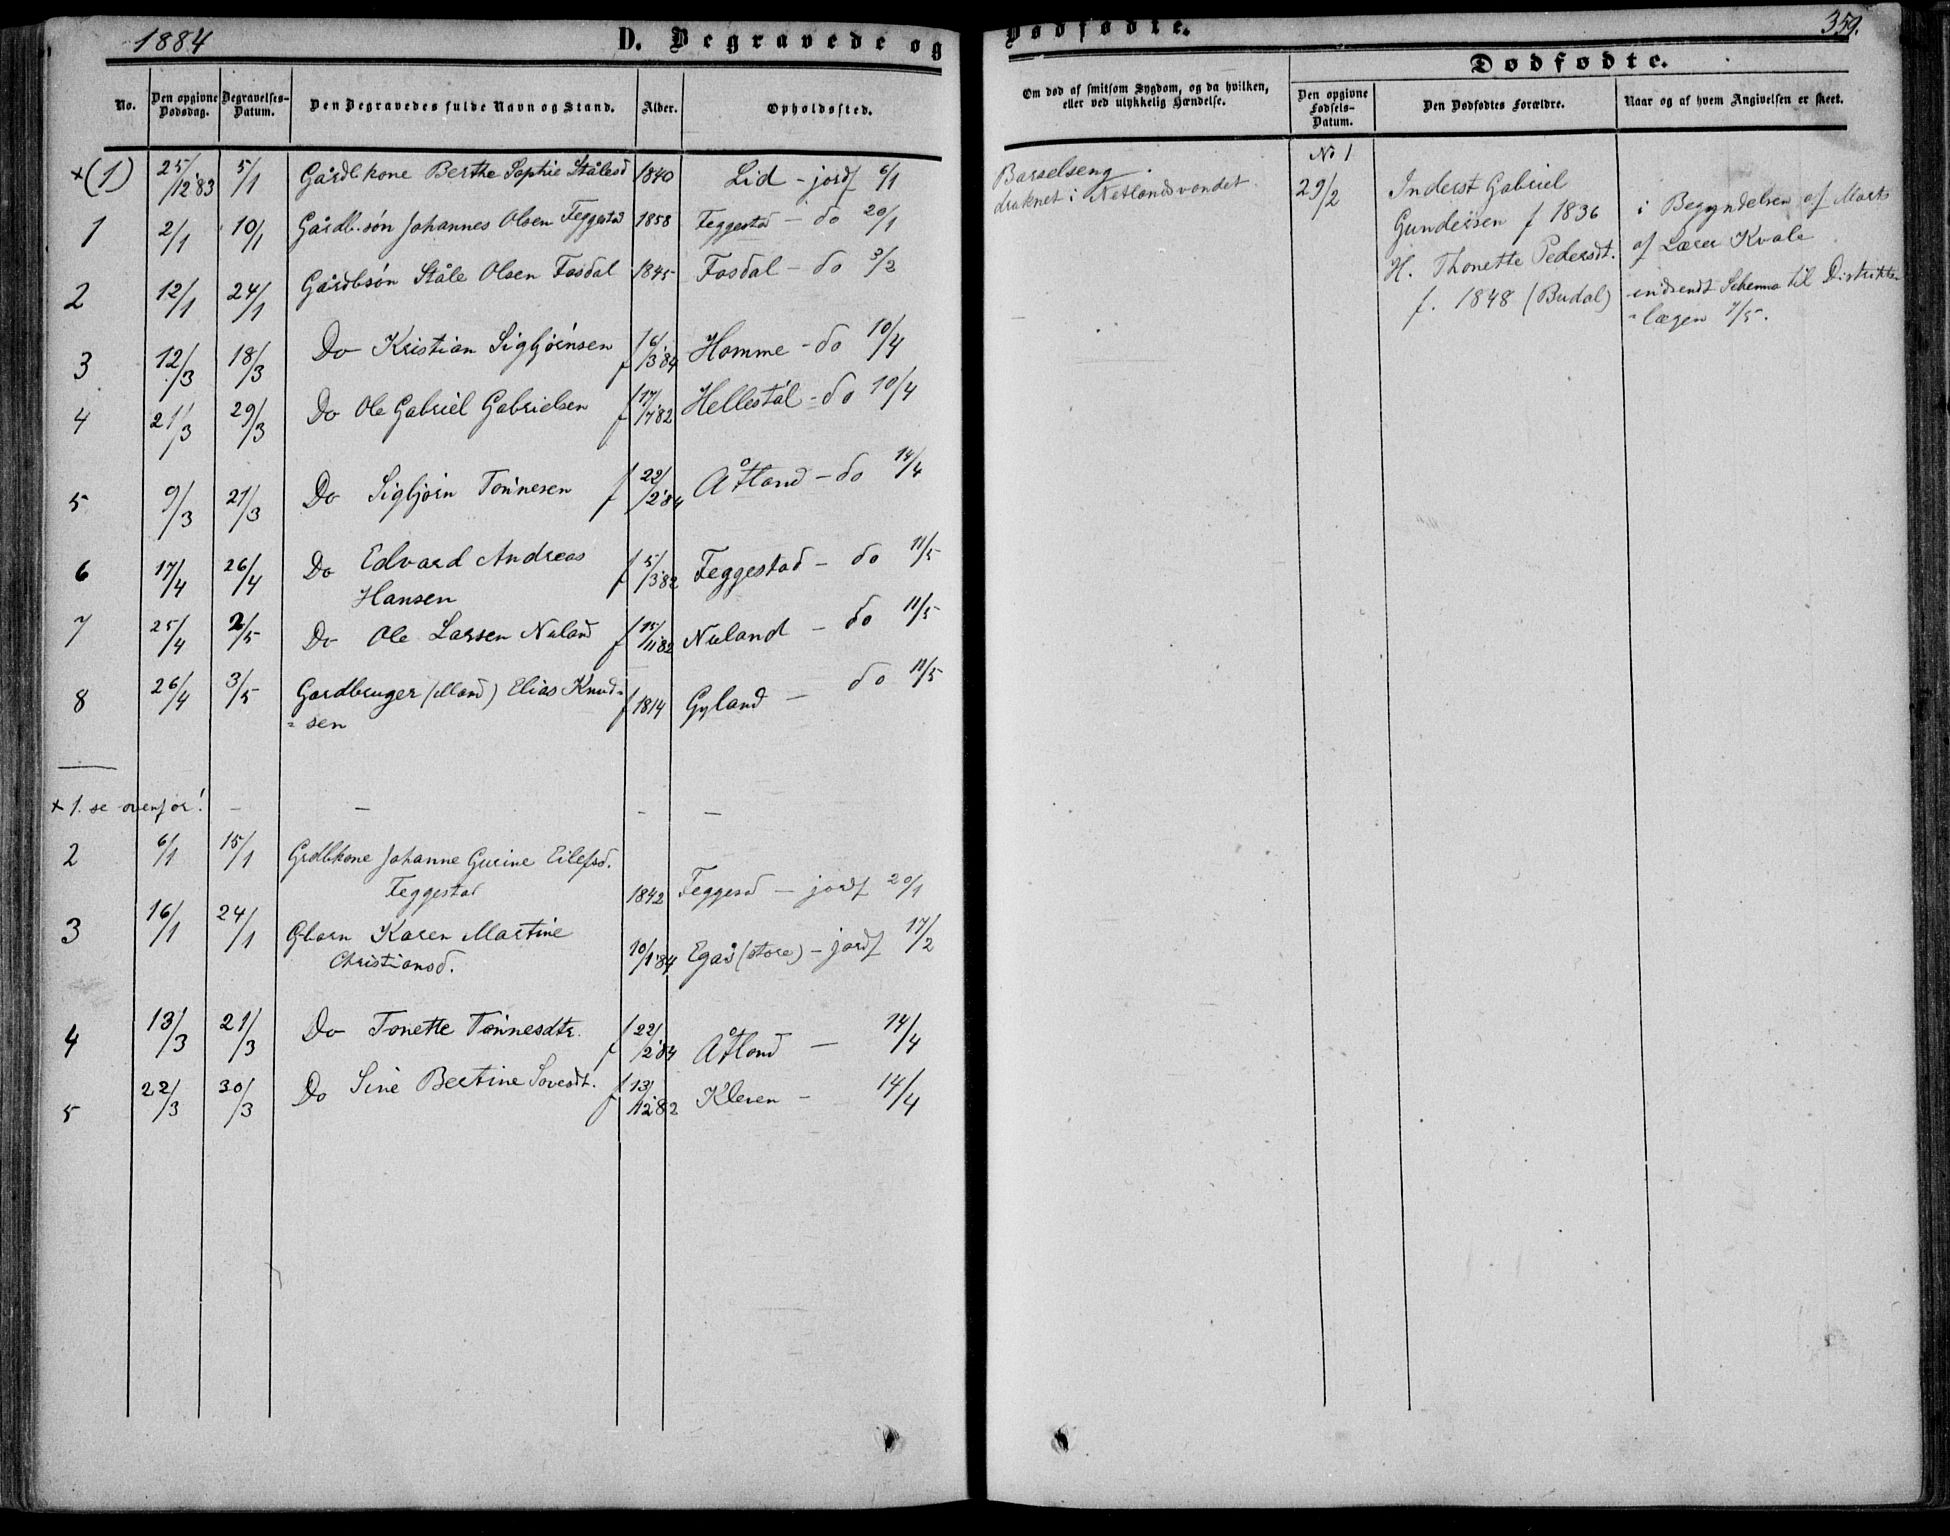 1884
D. Begravede og
No.
Den opgivne Dødsdag.
Begravelses-Datum.
Den Begravedes fulde Navn og Stand.
Alder.
Opholdssted.
×(1) 25/12 83 5/1 Gårdbkone Berthe Sophie Stålesd 1840 Lid - jordf 6/1
1 2/1 10/1 Gårdb.søn Johannes Olsen Feggestad 1858 Feggestad - do 20/1
2 12/1 24/1 Gårdbsøn Ståle Olsen Fosdal 1845 Fosdal - do 3/2
3 12/3 18/3 Do Kristian Sigbjørnsen f 6/3 84 Homme - do 10/4
4 21/3 29/3 Do Ole Gabriel Gabrielsen f 17/7 82 Hellestøl - do 10/4
5 9/3 21/3 Do Sigbjørn Tønnesen f 22/2 84 Åtland - do 14/4
6 17/4 26/4 Do Edvard Andreas f 5/3 82 Feggestad - do 11/5
Hansen
7 25/4 2/5 Do Ole Larsen Nuland f 15/11 82 Nuland - do 11/5
8 26/4 3/5 Gardbruger (Mand) Elias Knud= f 1814 Gyland - do 11/5
= sen
× 1. se ovenfor! - - - -
2 6/1 15/1 Grdbkone Johanne Gurine Eilefsd.
Feggestad 1842 Feggesd - jordf 20/1
3 16/1 24/1 Gbarn Karen Martine
Christiansd. 10/1 84 Egås (store) - jordf 17/2
4 13/3 21/3 Do Tonette Tønnesdtr. f 22/2 84 Åtland - 14/4
5 22/3 30/3 Do Sine Bertine Sovesdt. f 13/12 82 Kleven - 14/4
Dødfødte.
359.
Om død af smitsom Sygdom, og da hvilken,
eller ved ulykkelig Hændelse.
Dødfødte.
Den opgivne Fødsels-Datum.
Den Dødfødtes Forældre.
Naar og af hvem Angivelsen er skeet.
Barselseng.
druknet i Netlandsvandet.
No 1
29/2
Inderst Gabriel
Gundersen f 1836
H. Thonette Pedersdt.
f. 1848 (Budal)
i Begyndelsen af Marts
af Lærer Kvale
indsendt Schema til Distrikts=
= lægen 7/5.